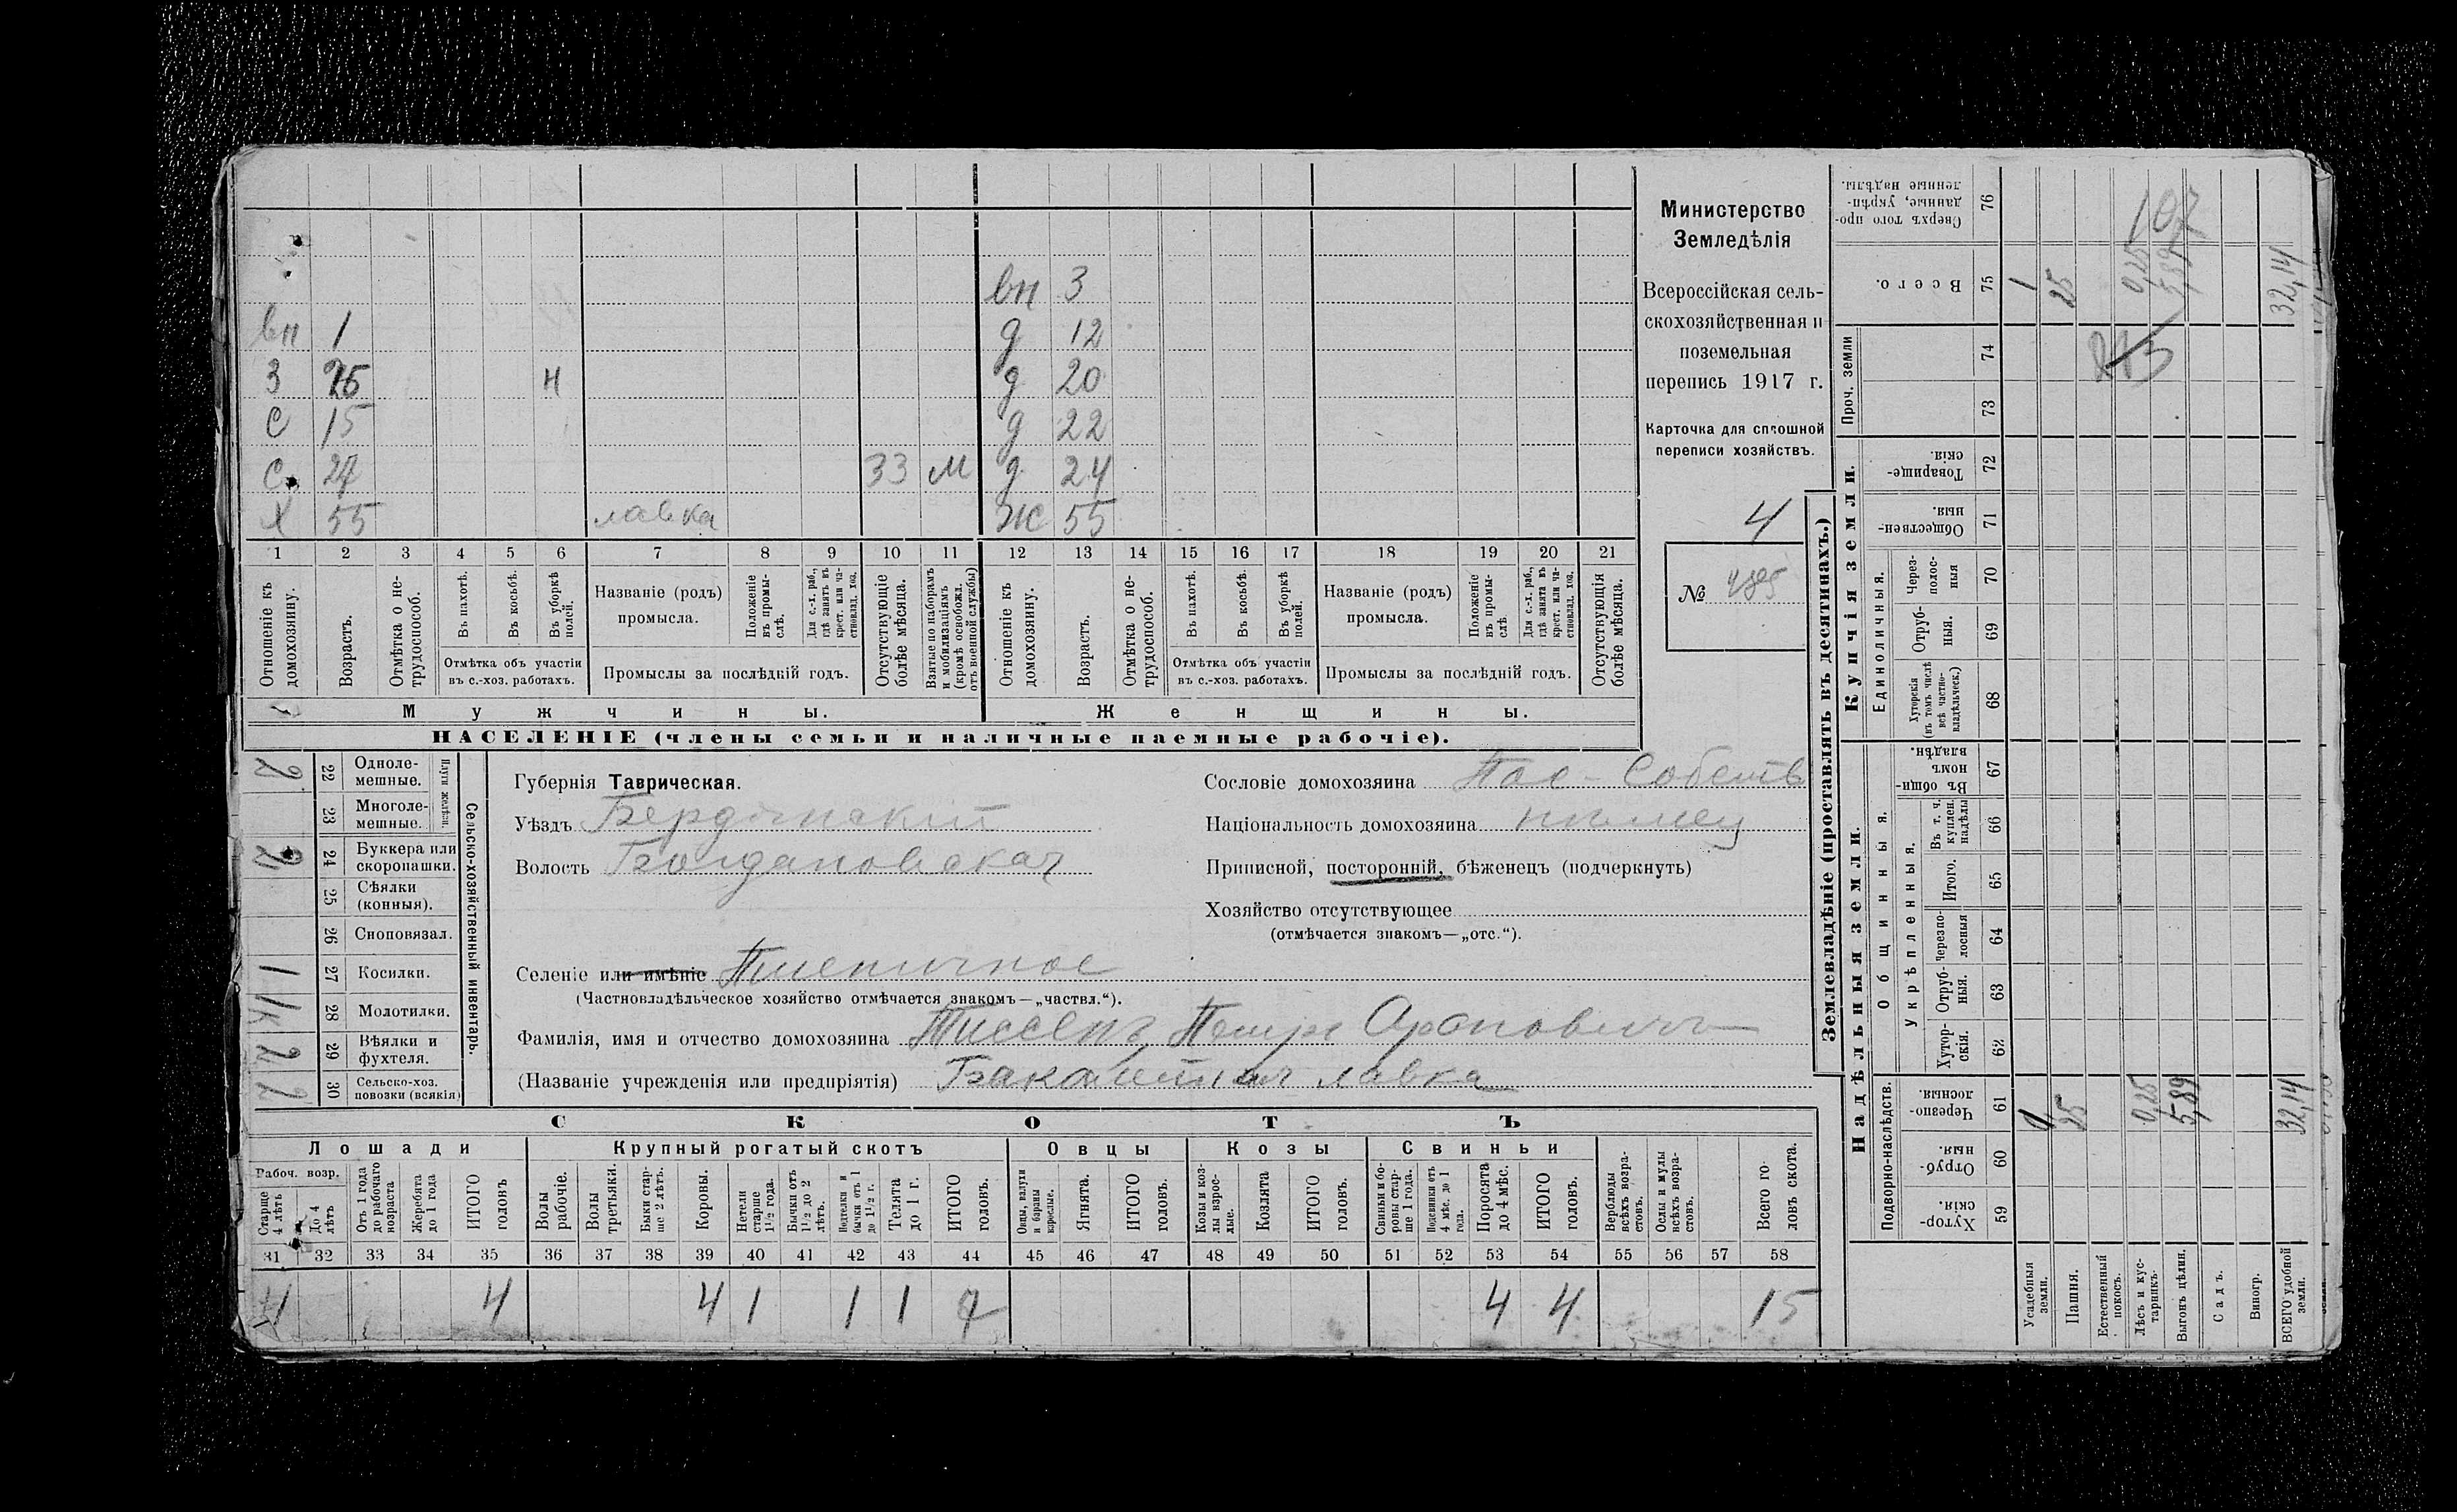 вн 3
вн 1 д 12
З 25 н д 20
С 15 д 22
С 27 33 М д 24
Х 55 лавка Ж 55
1 2 3 4 5 6 7 8 9 10 11 12 13 14 15 16 17 18 19 20 21
Отношеніе къ домохозяину.
Возрастъ.
Отмѣтка о не-трудоспособ.
Въ пахотѣ.
Въ косьбѣ.
Въ уборкѣ полей.
Отмѣтка объ участіи
въ с.-хоз. работахъ.
Названіе (родъ)
промысла.
Положеніе въ промы-слѣ.
Для с.-х. раб., гдѣ занятъ въ крест. или ча-стновлад. хоз.
Промыслы за послѣдній годъ.
Отсутствующіе болѣе мѣсяца.
Взятые по наборамъ и мобилизаціямъ (кромѣ освобожд. отъ военной службы)
Отношеніе къ домохозяину.
Возрастъ.
Отмѣтка о не-трудоспособ.
Въ пахотѣ.
Въ косьбѣ.
Въ уборкѣ полей.
Отмѣтка объ участіи
въ с.-хоз. работахъ.
Названіе (родъ)
промысла.
Положеніе въ промы-слѣ.
Для с.-х. раб., гдѣ занята въ крест. или ча-стновлад. хоз.
Промыслы за послѣдній годъ.
Отсутствующія болѣе мѣсяца.
Мужчины. Женщины.
НАСЕЛЕНІЕ (члены семьи и наличные наемные рабочіе).
Министерство
Земледѣлія
Всероссійская сель-
скохозяйственная и
поземельная
перепись 1917 г.
Карточка для сплошной
переписи хозяйствъ.
4
№ 485
Сельско-хозяйственный инвентарь.
Плуги желѣзн.
2 22 Одноле-мешные.
23 Многоле-мешные.
2 24 Буккера или скоропашки.
25 Сѣялки (конныя).
26 Сноповязал.
1 27 Косилки.
1к 28 Молотилки.
2 29 Вѣялки и фухтеля.
2 30 Сельско-хоз. повозки (всякія)
Губернія Таврическая.
Уѣздъ Бердянскій
Волость Богдановская
Селеніе или имѣніе Пшеничное
(Частновладѣльческое хозяйство отмѣчается знакомъ—„частвл.“).
Фамилія, имя и отчество домохозяина Тиссенъ, Петръ Ароновичъ
(Названіе учрежденія или предпріятія) Бакалейная лавка
Сословіе домохозяина Пос-Собств
Національность домохозяина нѣмец
Приписной, посторонній, бѣженецъ (подчеркнуть)
Хозяйство отсутствующее
(отмѣчается знакомъ—„отс.“).
СКОТЪ
Лошади Крупный рогатый скотъ Овцы Козы Свиньи
Рабоч. возр.
Старше 4 лѣтъ
До 4 лѣтъ
Отъ 1 года до рабочаго возраста
Жеребята до 1 года
ИТОГО головъ
Волы рабочіе.
Волы третьяки.
Быки стар-ше 2 лѣтъ.
Коровы.
Нетели старше 1½ года.
Бычки отъ 1½ до 2 лѣтъ.
Подтелки и бычки отъ 1 до 1½ г.
Телята до 1 г.
ИТОГО головъ.
Овцы, валухи и бараны взрослые.
Ягнята.
ИТОГО головъ.
Козы и коз-лы взрос-лые.
Козлята
ИТОГО головъ.
Свиньи и бо-ровы стар-ше 1 года.
Подсвинки отъ 4 мѣс. до 1 года.
Поросята до 4 мѣс.
ИТОГО головъ.
Верблюды всѣхъ возра-стовъ.
Ослы и мулы всѣхъ возра-стовъ.
Всего го-ловъ скота.
31 32 33 34 35 36 37 38 39 40 41 42 43 44 45 46 47 48 49 50 51 52 53 54 55 56 57 58
4 4 4 1 1 1 7 4 4 15
Землевладѣніе (проставлять въ десятинахъ.)
Надѣльныя земли. Купчія земли. Проч. земли
Подворно-наслѣдств.
Общинныя.
Укрѣпленныя.
Единоличныя.
Хутор-скія. 59
Отруб-ныя. 60
Черезпо-лосныя. 61
Хутор-скія. 62
Отруб-ныя. 63
Черезпо-лосныя 64
Итого. 65
Въ т. ч. куплен. надѣлы 66
Въ общин-номъ владѣн. 67
Хуторскія (въ томъ числѣ всѣ частно-владѣльческ.) 68
Отруб-ныя. 69
Через-полос-ныя 70
Обществен-ныя. 71
Товарище-скія. 72
73
74
Всего. 75
Сверхъ того про-данные, укрѣп-ленные надѣлы. 76
Усадебныя земли. 1 1
Пашня. 25 25
Естественный покосъ.
Лѣсъ и кус-тарникъ. 0,25 0,25
Выгонъ цѣлин. 5,89 5,89
Садъ.
Виногр.
ВСЕГО удобной земли. 32,14 32,14
107